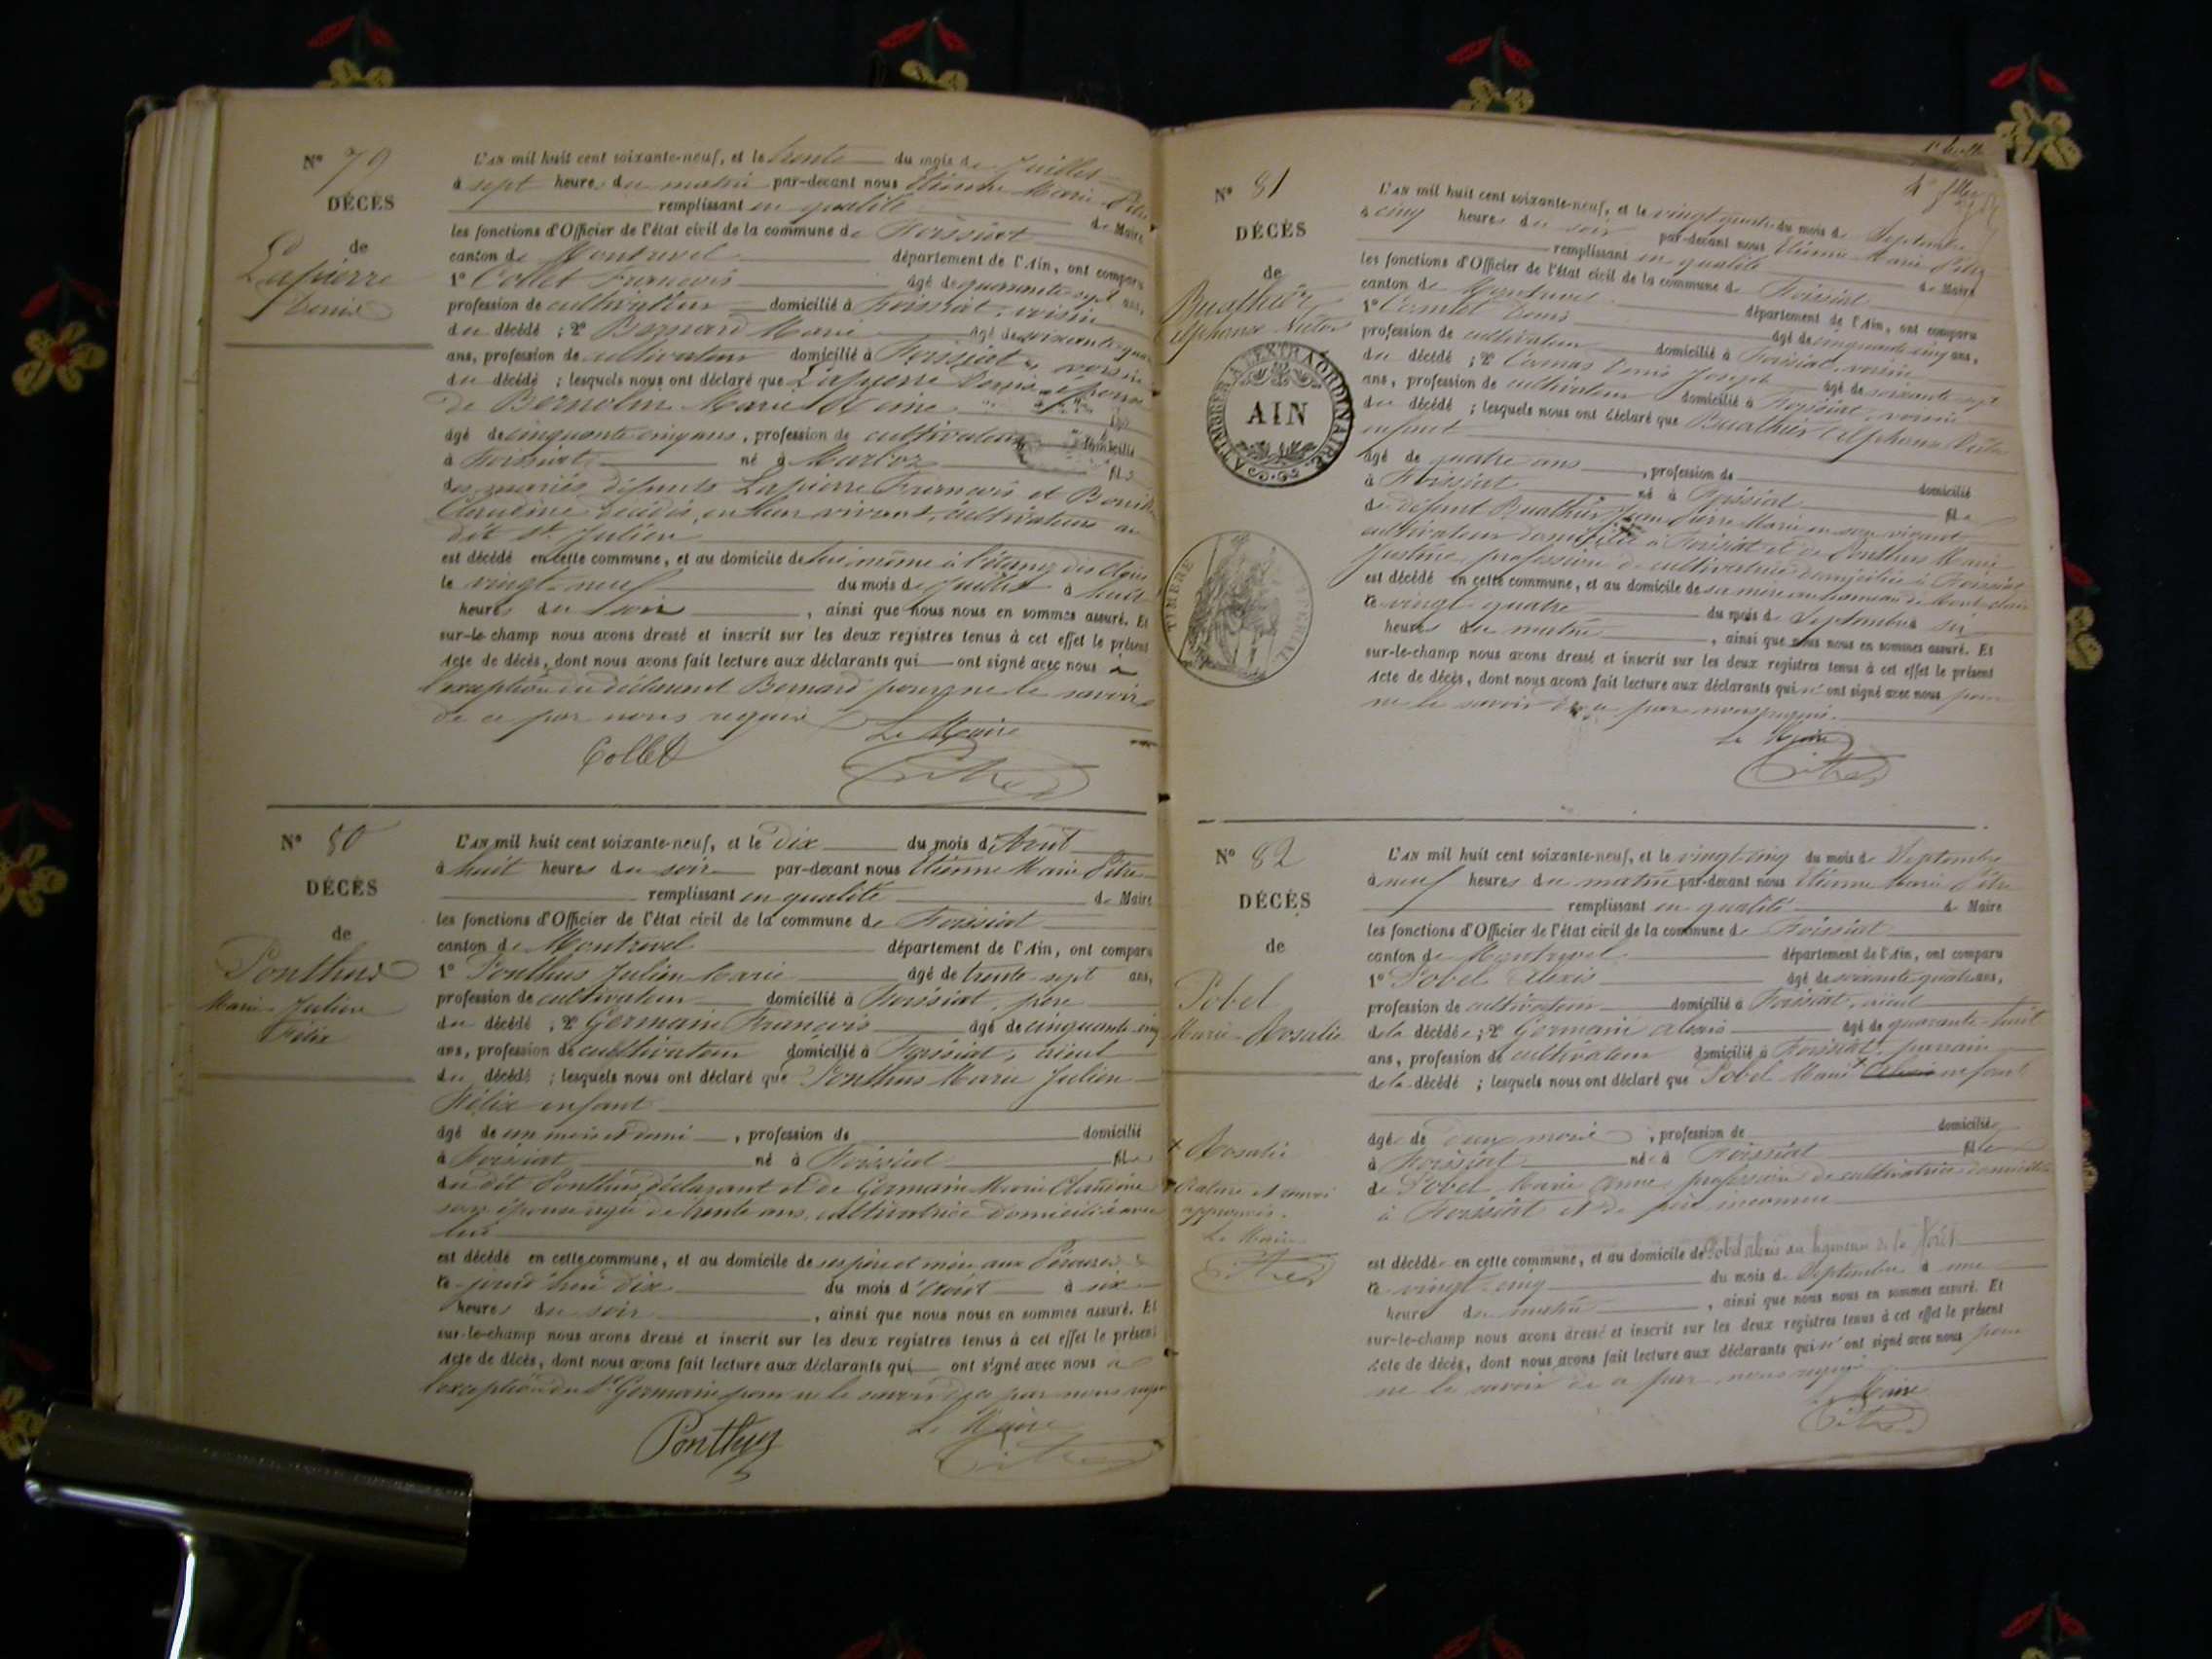 N° 79
DÉCÈS
de
Lapierre
Denis
L'AN mil huit cent soixante-neuf, et le trente du mois de Juillet
à sept heures du matin par-devant nous Etienne Marie Pitre
remplissant en qualité de Maire
les fonctions d'Officier de l'état civil de la commune de Foissiat
canton de Montrevel département de l'Ain, ont comparu
1° Collet François âgé de quarante-sept ans,
profession de cultivateur domicilié à Foissiat, voisin
du décédé ; 2° Bernard Marie âgé de soixante
ans, profession de cultivateur domicilié à Foissiat, voisin
du décédé ; lesquels nous ont déclaré que Lapierre Denis époux
de Marie Reine
âgé de cinquante cinq ans, profession de cultivateur domicilié
à Foissiat né à Marboz fils
des mariés défunts Lapierre François et
décédés, en leur vivant, cultivateurs au
dit St Julien
est décédé en cette commune, et au domicile de lui-même à l'étang
le vingt-neuf du mois de Juillet à huit
heures du soir, ainsi que nous nous en sommes assuré. Et
sur-le-champ nous avons dressé et inscrit sur les deux registres tenus à cet effet le présent
Acte de décès, dont nous avons fait lecture aux déclarants qui ont signé avec nous à
l'exception du déclarant Bernard pour ne le savoir
de ce par nous requis
Le Maire
Collet
N° 80
DÉCÈS
de
Ponthus
Marie Julien
Félix
L'AN mil huit cent soixante-neuf, et le dix du mois d'Août
à huit heures du soir par-devant nous Etienne Marie Pitre
remplissant en qualité de Maire
les fonctions d'Officier de l'état civil de la commune de Foissiat
canton de Montrevel département de l'Ain, ont comparu
1° Ponthus Julien Marie âgé de trente-sept ans,
profession de cultivateur domicilié à Foissiat, père
du décédé ; 2° Germain François âgé de cinquante-cinq
ans, profession de cultivateur domicilié à Foissiat, aïeul
du décédé ; lesquels nous ont déclaré que Ponthus Marie Julien
Félix enfant
âgé de un mois et demi, profession de domicilié
à Foissiat né à Foissiat fils
du dit Ponthus déclarant et de Germain Marie Claudine
son épouse âgée de trente ans, cultivatrice domiciliée avec
lui
est décédé en cette commune, et au domicile de ses père et mère aux
ce jourd'hui dix du mois d'août à six
heures du soir, ainsi que nous nous en sommes assuré. Et
sur-le-champ nous avons dressé et inscrit sur les deux registres tenus à cet effet le présent
Acte de décès, dont nous avons fait lecture aux déclarants qui ont signé avec nous à
l'exception du Sr Germain pour ne le savoir de ce par nous requis
Le Maire
Ponthus
N° 81
DÉCÈS
de
Buathier
Alphonse Victor
TIMBRE A L'EXTRAORDINAIRE
AIN
TIMBRE IMPÉRIAL
L'AN mil huit cent soixante-neuf, et le vingt-quatre du mois de Septembre
à cinq heures du soir par-devant nous Etienne Marie Pitre
remplissant en qualité de Maire
les fonctions d'Officier de l'état civil de la commune de Foissiat
canton de Montrevel département de l'Ain, ont comparu
1° Denis âgé de cinquante cinq ans,
profession de cultivateur domicilié à Foissiat, voisin
du décédé ; 2° Denis Joseph âgé de soixante sept
ans, profession de cultivateur domicilié à Foissiat, voisin
du décédé ; lesquels nous ont déclaré que Buathier Alphonse Victor
enfant
âgé de quatre ans, profession de domicilié
à Foissiat né à Foissiat fils
de défunt Buathier Jean Pierre Marie en son vivant
cultivateur domicilié à Foissiat et de Ponthus Marie
Justine, profession de cultivatrice domiciliée à Foissiat
est décédé en cette commune, et au domicile de sa mère au hameau de
ce vingt-quatre du mois de Septembre à six
heures du matin, ainsi que nous nous en sommes assuré. Et
sur-le-champ nous avons dressé et inscrit sur les deux registres tenus à cet effet le présent
Acte de décès, dont nous avons fait lecture aux déclarants qui n'ont signé avec nous pour
ne le savoir de ce par nous requis.
Le Maire
N° 82
DÉCÈS
de
Pobel
Marie-Rosalie
L'AN mil huit cent soixante-neuf, et le vingt-cinq du mois de Septembre
à neuf heures du matin par-devant nous Etienne Marie Pitre
remplissant en qualité de Maire
les fonctions d'Officier de l'état civil de la commune de Foissiat
canton de Montrevel département de l'Ain, ont comparu
1° Pobel Alexis âgé de soixante-quatre ans,
profession de cultivateur domicilié à Foissiat, aïeul
de la décédée ; 2° Germain Alexis âgé de quarante-huit
ans, profession de cultivateur domicilié à Foissiat, parrain
de la décédé ; lesquels nous ont déclaré que Pobel Marie enfant
âgé de deux mois, profession de domiciliée
à Foissiat née à Foissiat fille
de Pobel Marie Anne, profession de cultivatrice domiciliée
à Foissiat et de père inconnu
x Rosalie
Rature et renvoi
approuvés.
Le Maire
est décédée en cette commune, et au domicile de Pobel Alexis au hameau de la
ce vingt-cinq du mois de Septembre à une
heure du matin, ainsi que nous nous en sommes assuré. Et
sur-le-champ nous avons dressé et inscrit sur les deux registres tenus à cet effet le présent
Acte de décès, dont nous avons fait lecture aux déclarants qui n'ont signé avec nous pour
ne le savoir de ce par nous requis
Maire